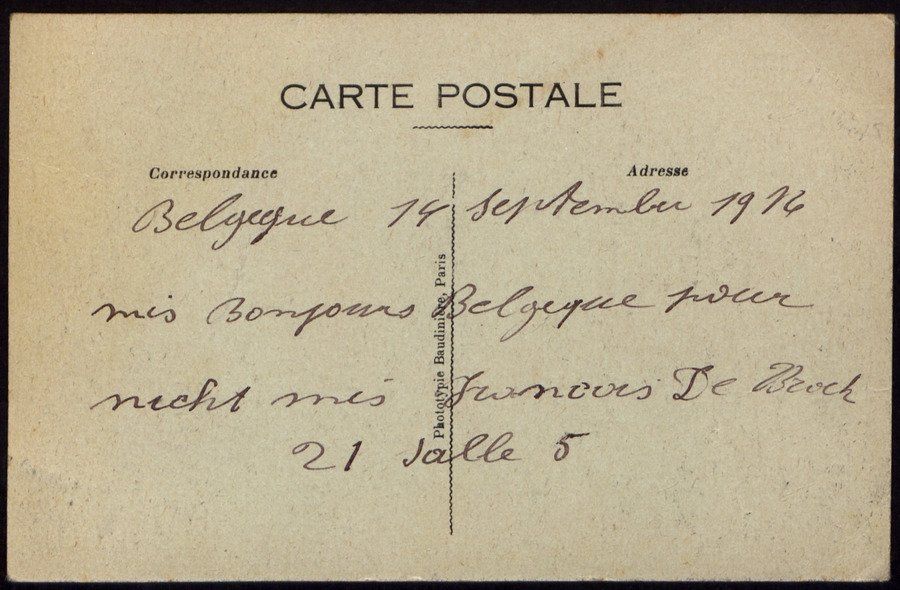 CARTE POSTALE
Correspondance
Adresse
Belgeque 14 Septembre 1916
mis Bonjours Belgeque pour
nicht mis Francois De Broch
21 Salle 5
Phototypie Baudinière, Paris